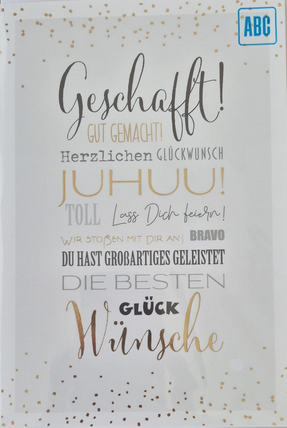 ABC
Geschafft!
GUT GEMACHT!
Herzlichen GLÜCKWUNSCH
JUHUU!
TOLL Lass Dich feiern!
WIR STOßEN MIT DIR AN! BRAVO
DU HAST GROßARTIGES GELEISTET
DIE BESTEN
GLÜCK
Wünsche